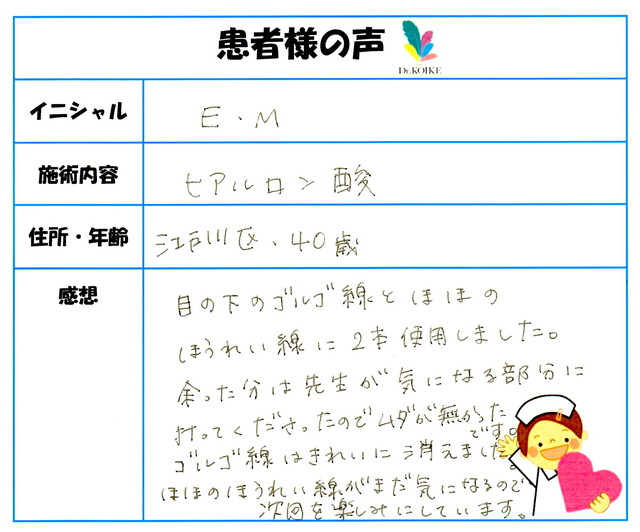 患者様の声
Dr.KOIKE
イニシャル
E・M
施術内容
ヒアルロン酸
住所・年齢
江戸川区、40歳
感想
目の下のゴルゴ線とほほの
ほうれい線に2本使用しました。
余った分は先生が気になる部分に
打ってくださったのでムダが無かった
です。
ゴルゴ線はきれいに消えました。
ほほのほうれい線がまだ気になるので
次回を楽しみにしています。